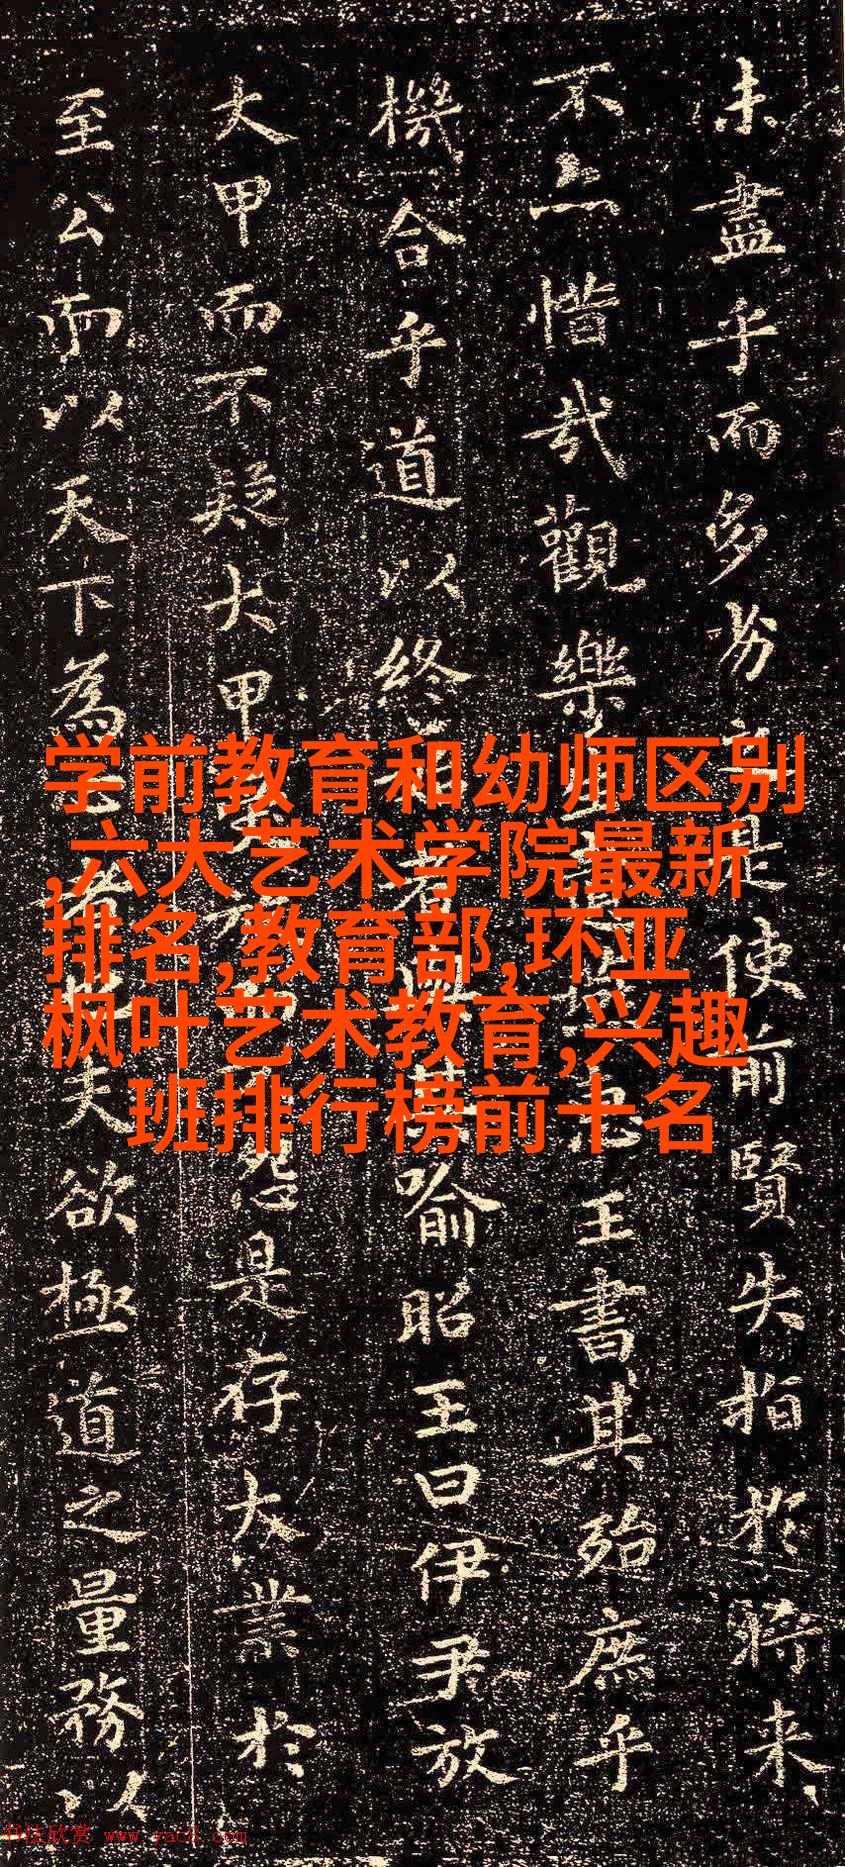 未盡乎而多劣是使前賢失指於將来
不亦惜哉觀樂王書其殆庶乎
機合乎道以終者喻昭王曰伊尹放
大甲而不疑大甲怨是存大業於
至公而以天下為夫欲極道之量務以
学前教育和幼师区别
,六大艺术学院最新
排名,教育部,环亚
枫叶艺术教育,兴趣
班排行榜前十名
书法欣赏 www.yac8.com